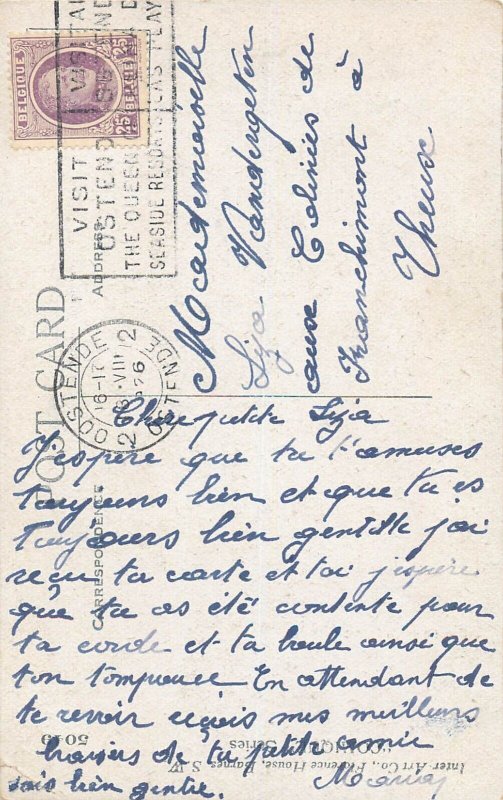 BELGIQUE
25 25
VISIT
OSTEND
THE QUEEN
SEASIDE RESORTS
PLAY
OOSTENDE
16-17
VIII
OSTENDE
2 2
POST CARD
ADDRESS
CORRESPONDENCE
Mademoiselle
Liza Vandergeten
aux Colonies de
Franchimont à
Theux
Chere petite Liza
J'espère que tu t'amuses
toujours bien et que tu es
toujours bien gentille j'ai
reçu ta carte et toi j'espère
que tu as été contente pour
ta corde et ta boule ainsi que
ton En attendant de
te revoir reçois mes meilleurs
baisers de ta petite amie
sois bien gentie. Maria
Inter-Art Co., Florence House, Barnes, S.W.
Series
5049